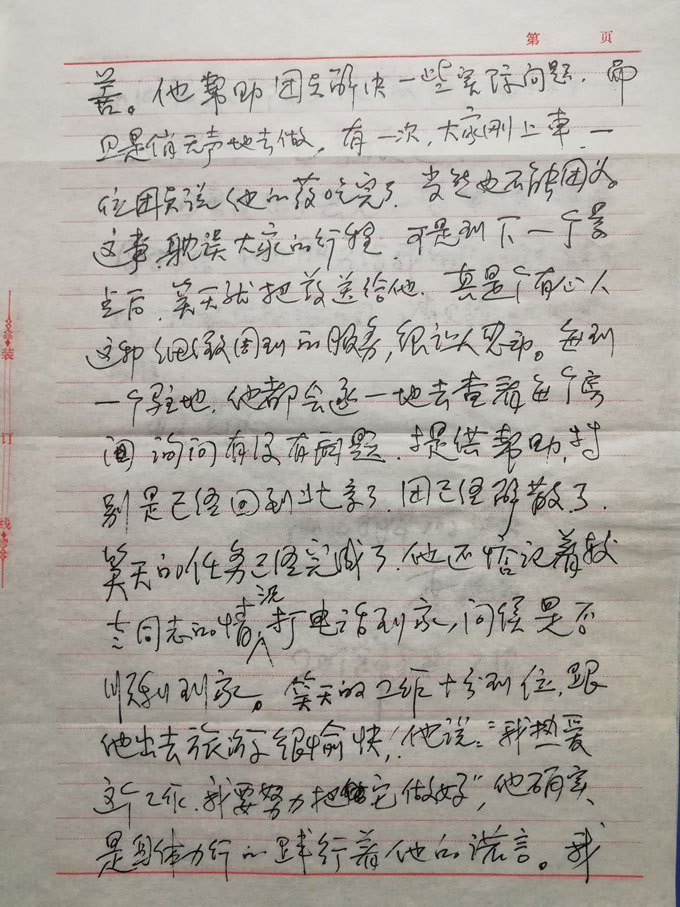 第 页
善。他帮助团员解决一些实际问题，而
且是俏无声地去做，有一次，大家刚上車，一
位团员说他的药吃完了，当然也不能因为
这事，耽误大家的行程，可是到下一个景
点后，笑天就把药送给他，真是个有心人
这种细致周到的服务，很让人感动。每到
一个驻地，他都会逐一地去查看每个房
间 询问有没有问题，提供帮助，特
别是已经回到北京了，团已经解散了，
笑天的任务已经完成了，他还惦记着
同志的情况打电话到家，问候是否
顺利到家。笑天的工作十分到位，跟
他出去旅游很愉快，他说："我热爱
这个工作，我要努力把它做好"，他确实
是身体力行的践行着他的诺言。我
装
订
线